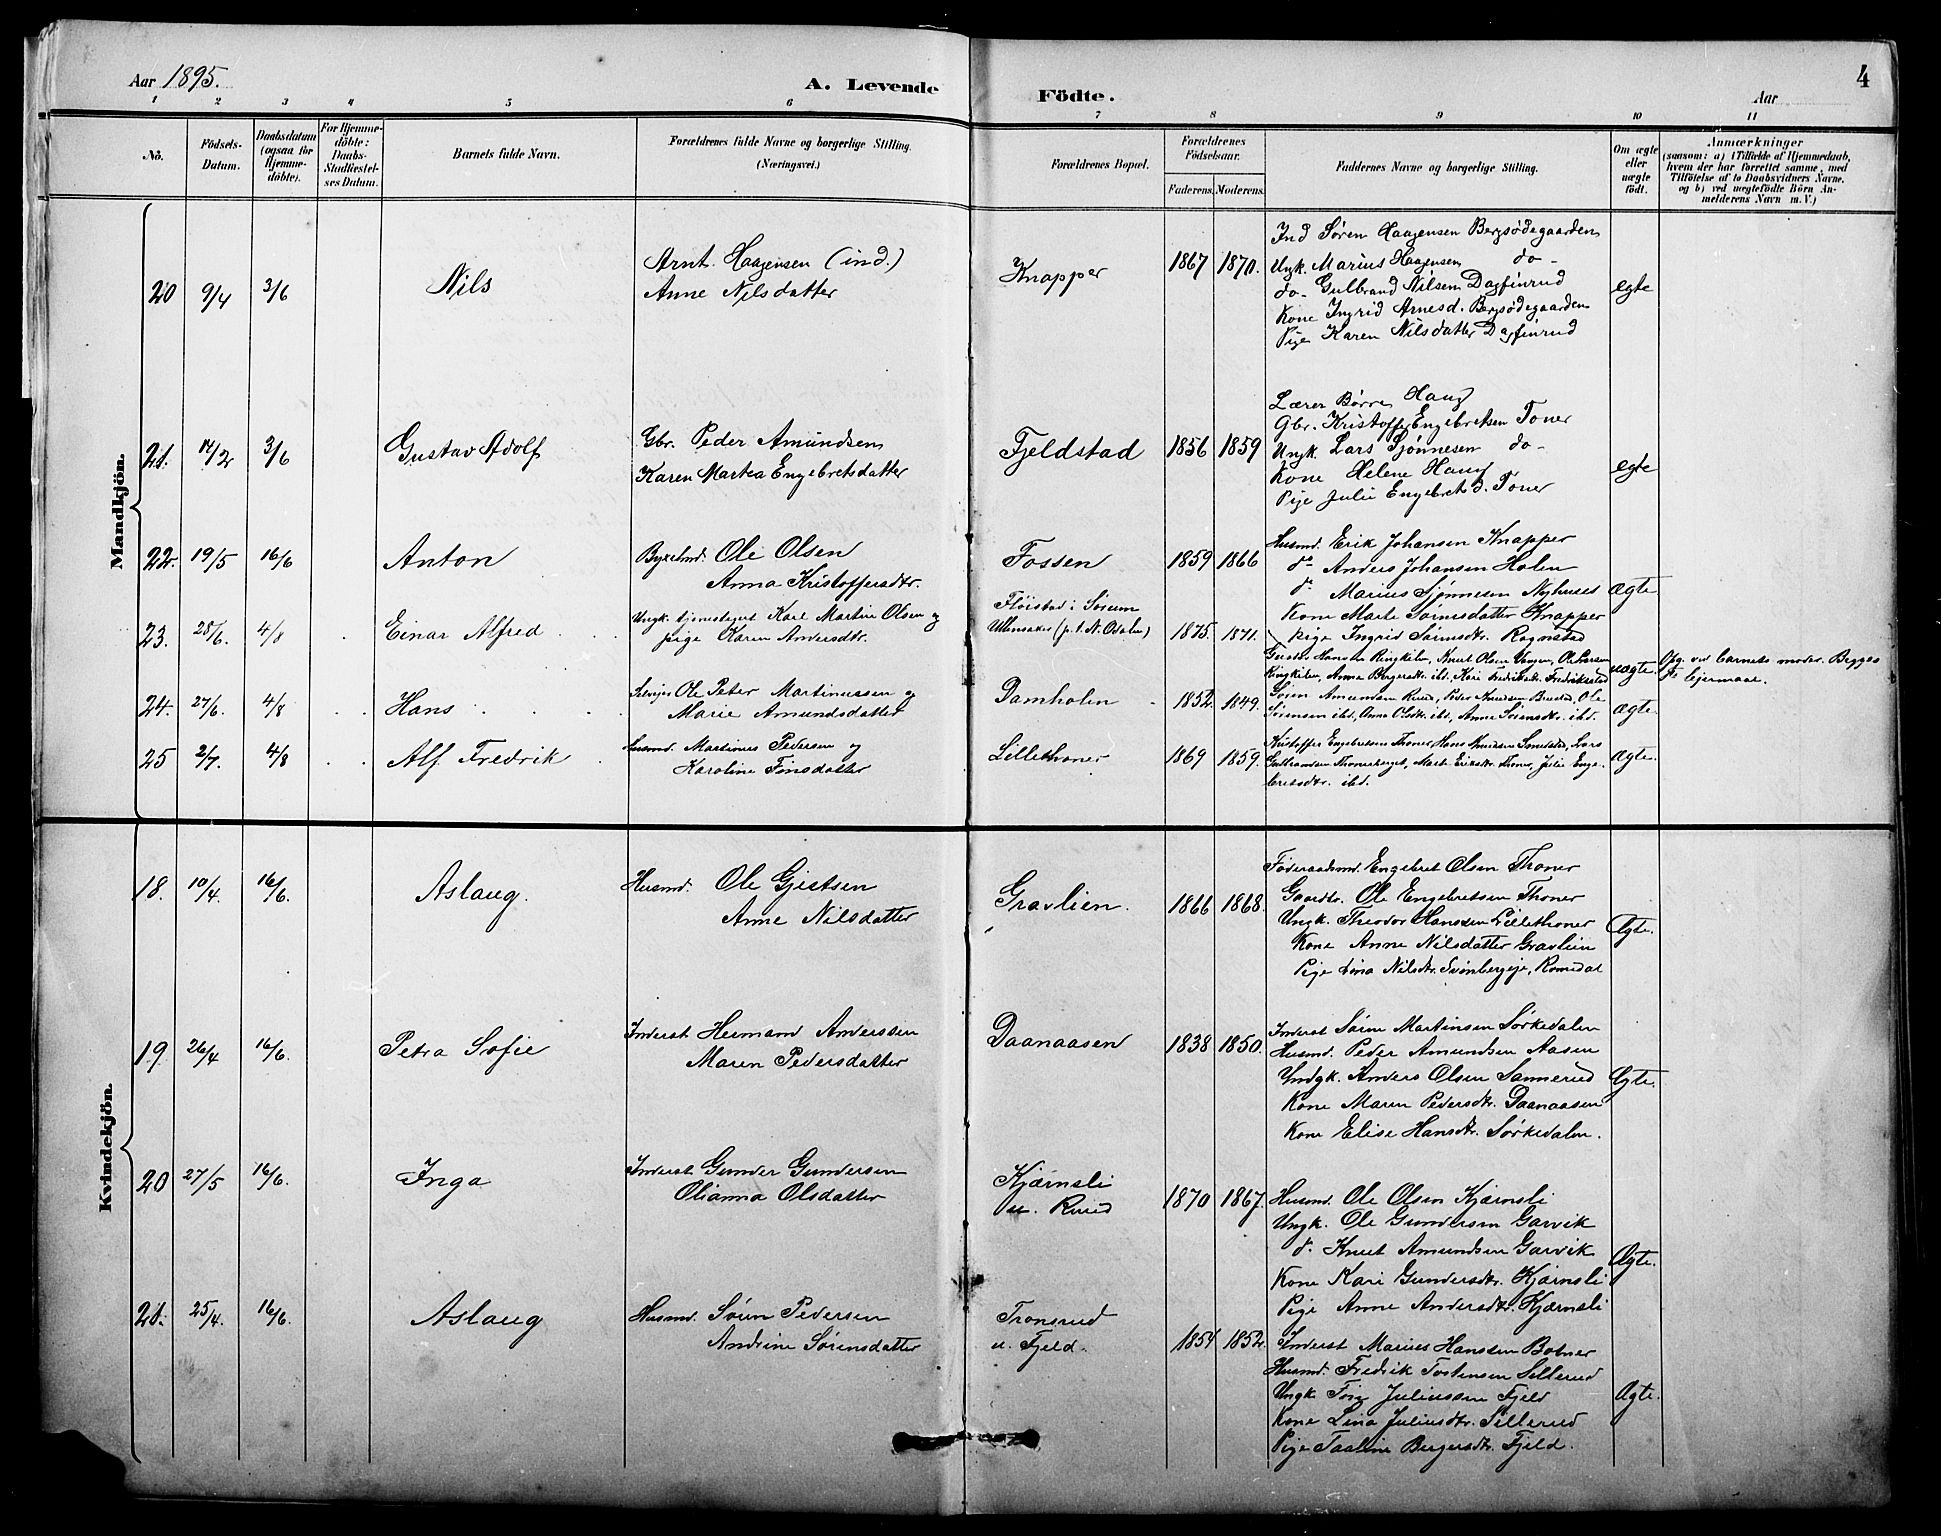 Aar 1895.
A. Levende Födte.
Aar
4
1 2 3 4 5 6 7 8 9 10 11
No.
Födsels-Datum.
Daabsdatum (ogsaa for Hjemme-döbte).
For Hjemme-döbte: Daabs-Stadfæstel-ses Datum.
Barnets fulde Navn.
Forældrenes fulde Navne og borgerlige Stilling. (Næringsvei.)
Forældrenes Bopæl.
Forældrenes Födselsaar.
Faderens. Moderens.
Faddernes Navne og borgerlige Stilling.
Om ægte eller uægte födt.
Anmærkninger
(saasom: a) i Tilfælde af Hjemmedaab,
hvem der har forrettet samme, med
Tilföielse af to Daabsvidners Navne,
og b) ved uægtefödte Börn An-
melderens Navn m. V.)
Mandkjön.
20 9/4 3/6 Nils
Arnt Haagensen (ind.)
Anne Nilsdatter
Knapper 1867 1870.
Ind Søren Haagensen Bergsødegaarden
Ungk. Marius Haagensen do-
do- Gulbrand Nilsen Dagfinrud
Kone Ingrid Arnesd. Bergsødegaarden
Pige Karen Nilsdatter Dagfinrud
egte
21. 14/2 3/6 Gustav Adolf
Gbr. Peder Amundsen
Karen Martea Engebretsdatter
Fjeldstad 1856 1859
Lærer Børre Haug
Gbr. Kristoffer Engebretsen Toner
Ungk Lars Sjønnesen do-
Kone Helene Haug
Pige Julie Engebretsd. Toner
egte
22. 19/5 16/6 Anton
Bygselmd. Ole Olsen
Anna Kristoffersdtr.
Fossen 1859 1866
Husmd. Erik Johansen Knapper
do Anders Johansen Holen
do Marius Sjønnesen Nyhuset
Kone Marte Sørensdatter Knapper
Pige Ingrid Sørensdtr. Rognstad
Ægte
23. 28/6. 4/8 Einar Alfred
Ungk. tjenestegut Karl Martin Olsen og
pige Karen Andersdtr.
Fløistad i Sørum
Ullensaker (p. t. N. Odalen) 1875. 1871.
Hansen Ringkilen, Knut Olsen Ole Larsen
Ringkilen, Anna Bergersdtr. ibd. Kari Fredriksdtr. Fredrikstad
uægte.
Opg. ved barnets moder. Begges
1ste leiermaal.
24. 27/6. 4/8 Hans
Selveier Ole Peter Martinussen og
Marie Amundsdatter
Damholen 1852. 1849.
Søren Amundsen Ruud, Peder Knudsen Ole
Sørensen ibd, Anne Olsdtr. ibd., Anne Sørensdtr. ibd.
Ægte
25 2/7. 4/8 Alf Fredrik
Husmd. Martinus Pedersen og
Karoline Finsdatter
Lillethoner 1869 1859.
Kristoffer Engebretsen Thoner, Hans Knudsen Lars
Gulbrandsen Thonerberget, Marte Eriksdtr. Thoner, Julie Enge-
bretsdtr. ibd.
Ægte.
Kvindekjön.
18. 10/4. 16/6. Aslaug.
Husmd. Ole Gjestsen
Anne Nilsdatter
Gravlien. 1866 1868.
Føderaadsmd. Engebret Olsen Thoner
Gaardbr. Ole Engebretsen Thoner
Ungk. Theodor Hanssen Lillethoner
Kone Anne Nilsdatter Gravlien
Pige Lina Nilsdtr. Romedal
Ægte.
19. 26/4 16/6. Petra Sofie
Inderst Hermand Anderssen
Maren Pedersdatter
Daanaasen 1838 1850.
Inderst Søren Martinsen Sørkedalen
Husmd. Peder Amundsen Aasen
Undgk. Anders Olsen Sannerud
Kone Maren Pedersdtr. Daanaasen
Kone Elise Hansdtr. Sørkedalen.
Ægte.
20 27/5 16/6. Inga
Inderst Gunder Gundersen
Olianna Olsdatter
Kjærnsli
u. Ruud 1870 1867.
Husmd. Ole Olsen Kjærnsli
Ungk. Ole Gundersen Garvik
do. Knut Amundsen Garvik
Kone Kari Gundersdtr. Kjærnsli
Pige Anne Andersdtr. Kjærnsli
Ægte.
21. 25/4. 16/6. Aslaug
Husmd. Søren Pedersen
Andrine Sørensdatter
Tronsrud
u. Fjeld. 1854 1852.
Inderst Marius Hanssen Botner
Husmd. Fredrik Tostensen Sillerud
Ungk Juliussen Fjeld
Kone Lina Juliusdtr. Sillerud
Pige Taaline Bergersdtr. Fjeld.
Ægte.